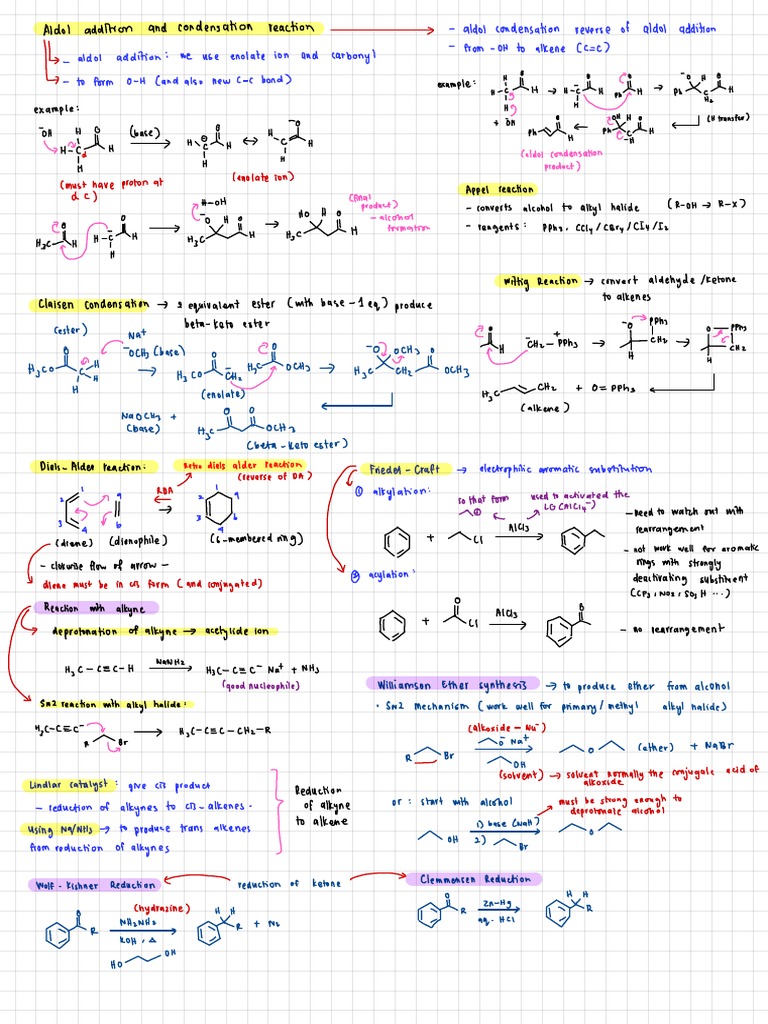 Aldol addition and condensation reaction
- aldol addition: we use enolate ion and carbonyl
- to form O-H (and also new C-C bond)
- aldol condensation reverse of aldol addition
- from -OH to alkene (C=C)
example:
-OH
H
O
H-C
H
H
(base)
(must have proton at
α C)
(enolate ion)
H-OH
H3C
H
HO H
(final
product)
- alcohol
formation
example:
+ OH
Ph
(H transfer)
(aldol condensation
product)
Appel reaction
- converts alcohol to alkyl halide (R-OH → R-X)
- reagents: PPh3, CCl4/CBr4/CI4/I2
Wittig Reaction → convert aldehyde/ketone
to alkenes
-CH2-PPh3
+
-O PPh3
CH2
O-PPh3
CH2
H3C CH2 + O=PPh3
(alkene)
Claisen Condensation → 2 equivalent ester (with base - 1 eq) produce
beta-keto ester
(ester)
Na+
-OCH3 (base)
H3CO
H3CO CH2
(enolate)
H3C OCH3
-O OCH3
H3C CH2 OCH3
NaOCH3 +
(base)
H3C OCH3
(beta-keto ester)
Diels-Alder reaction:
Retro diels alder reaction
(reverse of DA)
RDA
1
2
3
4
(diene) (dienophile) (6-membered ring)
- clockwise flow of arrow -
diene must be in cis form (and conjugated)
Friedel-Craft → electrophilic aromatic substitution
① alkylation:
so that form
used to activated the
LG (AlCl4-)
+ Cl AlCl3
- need to watch out with
rearrangement
- not work well for aromatic
rings with strongly
deactivating substituent
(CF3, NO2, SO3H ...)
② acylation:
+ O Cl AlCl3 O
- no rearrangement
Reaction with alkyne
deprotonation of alkyne → acetylide ion
H3C-C≡C-H NaNH2 → H3C-C≡C- Na+ + NH3
(good nucleophile)
Sn2 reaction with alkyl halide:
H3C-C≡C- R Br → H3C-C≡C-CH2-R
Williamson Ether synthesis → to produce ether from alcohol
· Sn2 mechanism (work well for primary/methyl alkyl halide)
(alkoxide - Nu-)
R Br O- Na+ OH → O (ether) + NaBr
(solvent) → solvent normally the conjugate acid of
alkoxide
or: start with alcohol
must be strong enough to
deprotonate alcohol
OH 1) base (NaH) 2) Br → O
Lindlar catalyst: give cis product
- reduction of alkynes to cis-alkenes.
Using Na/NH3 → to produce trans alkenes
from reduction of alkynes
Reduction
of alkyne
to alkene
Wolf-Kishner Reduction
reduction of ketone
Clemmensen Reduction
O R
(hydrazine)
NH2NH2
KOH, Δ
HO OH
H H R + N2
O R
Zn-Hg
aq. HCl
H H R